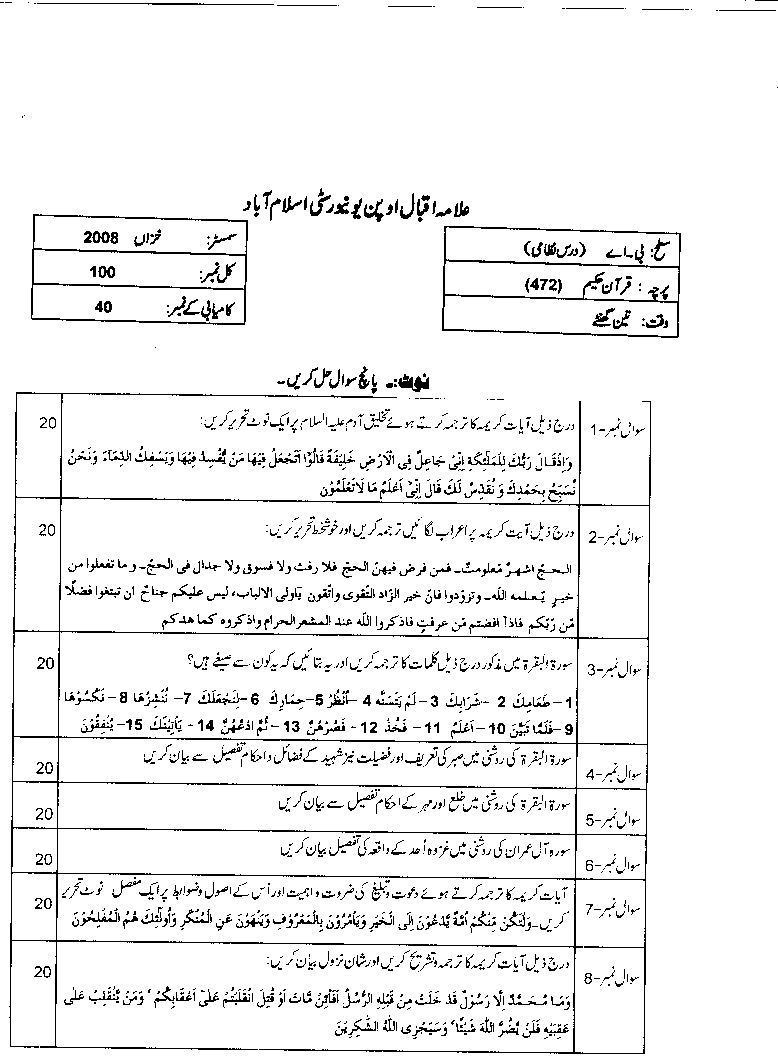 علامہ اقبال اوپن یونیورسٹی اسلام آباد
سطح: بی۔اے (درس نظامی)
پرچہ: قرآن حکیم (472)
وقت: تین گھنٹے
سمسٹر: خزاں 2008
کل نمبر: 100
کامیابی کے نمبر: 40
نوٹ:۔ پانچ سوال حل کریں۔
سوال نمبر-1 درج ذیل آیات کریمہ کا ترجمہ کرتے ہوئے تخلیق آدم علیہ السلام پر ایک نوٹ تحریر کریں: 20
وَاِذْقَالَ رَبُّكَ لِلْمَلٰٓئِكَةِ اِنِّىْ جَاعِلٌ فِى الْاَرْضِ خَلِيْفَةً قَالُوْٓا اَتَجْعَلُ فِيْهَا مَنْ يُّفْسِدُ فِيْهَا وَيَسْفِكُ الدِّمَآءَ وَنَحْنُ
نُسَبِّحُ بِحَمْدِكَ وَ نُقَدِّسُ لَكَ قَالَ اِنِّىْٓ اَعْلَمُ مَا لَا تَعْلَمُوْنَ
سوال نمبر-2 درج ذیل آیت کریمہ پر اعراب لگائیں ترجمہ کریں اور خوشخط تحریر کریں: 20
الحجّ اشهرٌ معلومٰت۔ فمن فرض فیهنّ الحج فلا رفث ولا فسوق ولا جدال فی الحجّ۔ و ما تفعلوا من
خیرٍ یّعلمه اللّٰه۔ وتزوّدوا فانّ خیر الزّاد التّقوی واتّقون یٰاولی الالباب، لیس علیکم جناحٌ ان تبتغوا فضلًا
مّن رّبّکم فاذآ افضتم مّن عرفٰتٍ فاذکروا اللّٰه عند المشعر الحرام واذکروه کما هدٰکم
سوال نمبر-3 سورۃ البقرۃ میں مذکور درج ذیل کلمات کا ترجمہ کریں اور یہ بتائیں کہ یہ کون سے صیغے ہیں؟ 20
1- طَعَامِكَ 2- شَرَابِكَ 3- لَمْ يَتَسَنَّهْ 4- اُنْظُرْ 5- حِمَارِكَ 6- لِنَجْعَلَكَ 7- نُنْشِزُهَا 8- نَكْسُوْهَا
9- فَلَمَّا تَبَيَّنَ 10- اَعْلَمُ 11- فَخُذْ 12- فَصُرْهُنَّ 13- ثُمَّ ادْعُهُنَّ 14- يَأْتِيْنَكَ 15- يُنْفِقُوْنَ
سوال نمبر-4 سورۃ البقرۃ کی روشنی میں صبر کی تعریف اور فضیلت نیز شہید کے فضائل و احکام تفصیل سے بیان کریں 20
سوال نمبر-5 سورۃ البقرۃ کی روشنی میں خلع اور مہر کے احکام تفصیل سے بیان کریں 20
سوال نمبر-6 سورہ آل عمران کی روشنی میں غزوہ اُحد کے واقعہ کی تفصیل بیان کریں 20
سوال نمبر-7 آیات کریمہ کا ترجمہ کرتے ہوئے دعوت و تبلیغ کی ضرورت و اہمیت اور اُس کے اصول وضوابط پر ایک مفصل نوٹ تحریر 20
کریں۔ وَلْتَكُنْ مِّنْكُمْ اُمَّةٌ يَّدْعُوْنَ اِلَى الْخَيْرِ وَيَأْمُرُوْنَ بِالْمَعْرُوْفِ وَيَنْهَوْنَ عَنِ الْمُنْكَرِ وَاُولٰٓئِكَ هُمُ الْمُفْلِحُوْنَ
سوال نمبر-8 درج ذیل آیات کریمہ کا ترجمہ و تشریح کریں اور شان نزول بیان کریں: 20
وَمَا مُحَمَّدٌ اِلَّا رَسُوْلٌ قَدْ خَلَتْ مِنْ قَبْلِهِ الرُّسُلُ اَفَا۟ئِنْ مَّاتَ اَوْ قُتِلَ انْقَلَبْتُمْ عَلٰٓى اَعْقَابِكُمْ وَمَنْ يَّنْقَلِبْ عَلٰى
عَقِبَيْهِ فَلَنْ يَّضُرَّ اللّٰهَ شَيْئًا وَسَيَجْزِى اللّٰهُ الشّٰكِرِيْنَ